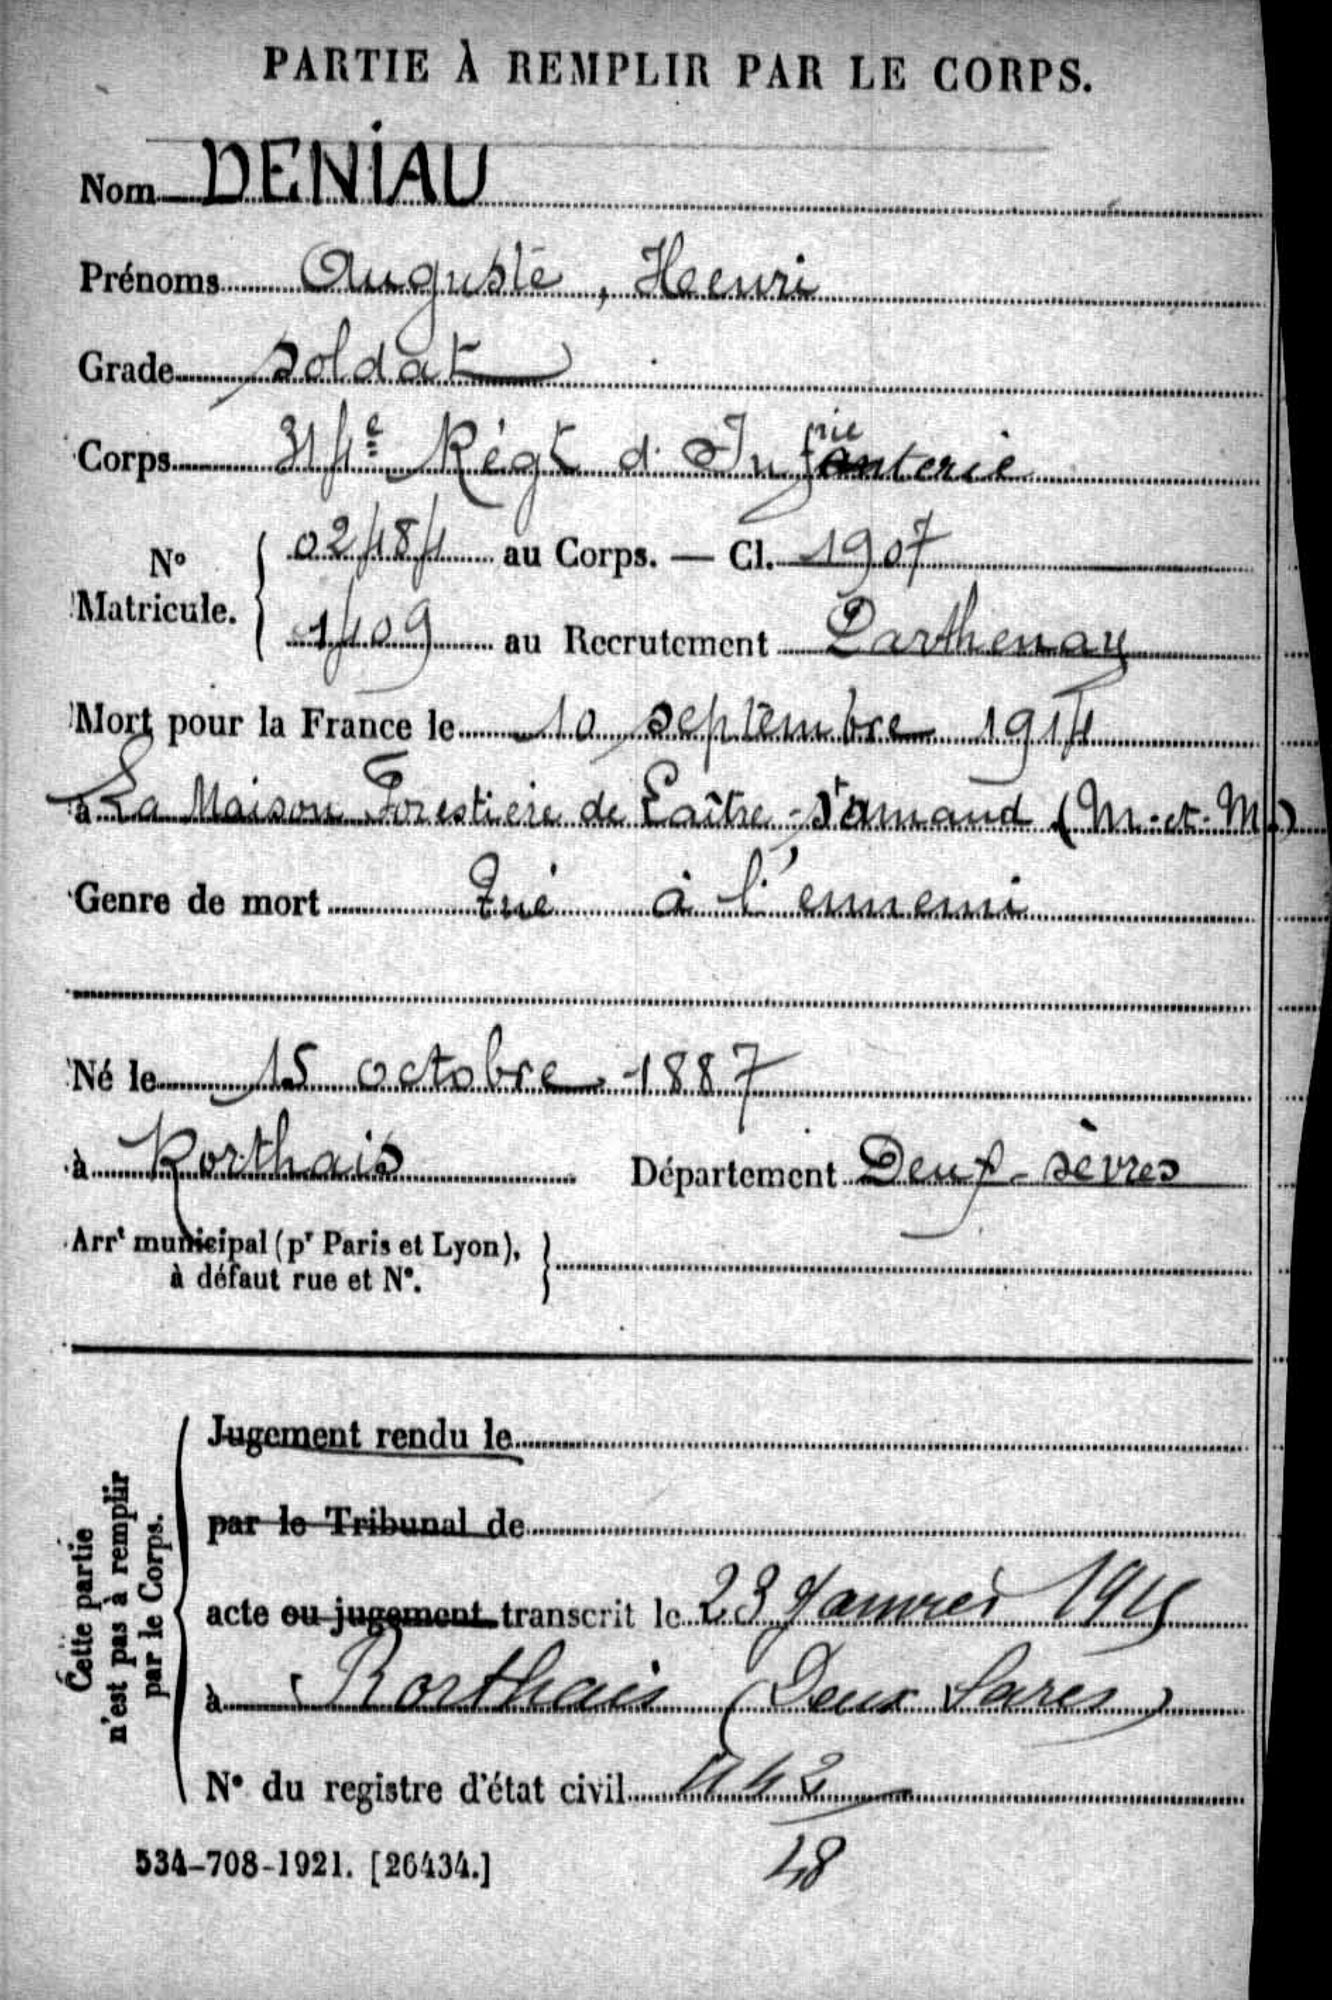 PARTIE À REMPLIR PAR LE CORPS.
Nom DENIAU
Prénoms Auguste, Henri
Grade soldat
Corps 314e Régt d'Infanterie
rie
N° Matricule. { 02484 au Corps. — Cl. 1907
1409 au Recrutement Parthenay
Mort pour la France le 10 septembre 1914
à La Maison Forestière de Laître-St Amand (M.-et-M.)
Genre de mort Tué à l'ennemi
Né le 15 octobre 1887
à Rorthais Département Deux-sèvres
Arrt municipal (pr Paris et Lyon), }
à défaut rue et N°.
Cette partie
n'est pas à remplir
par le Corps.
Jugement rendu le
par le Tribunal de
acte ou jugement transcrit le 23 Janvier 1915
à Rorthais (Deux Sèvres)
N° du registre d'état civil
534-708-1921. [26434.]
48